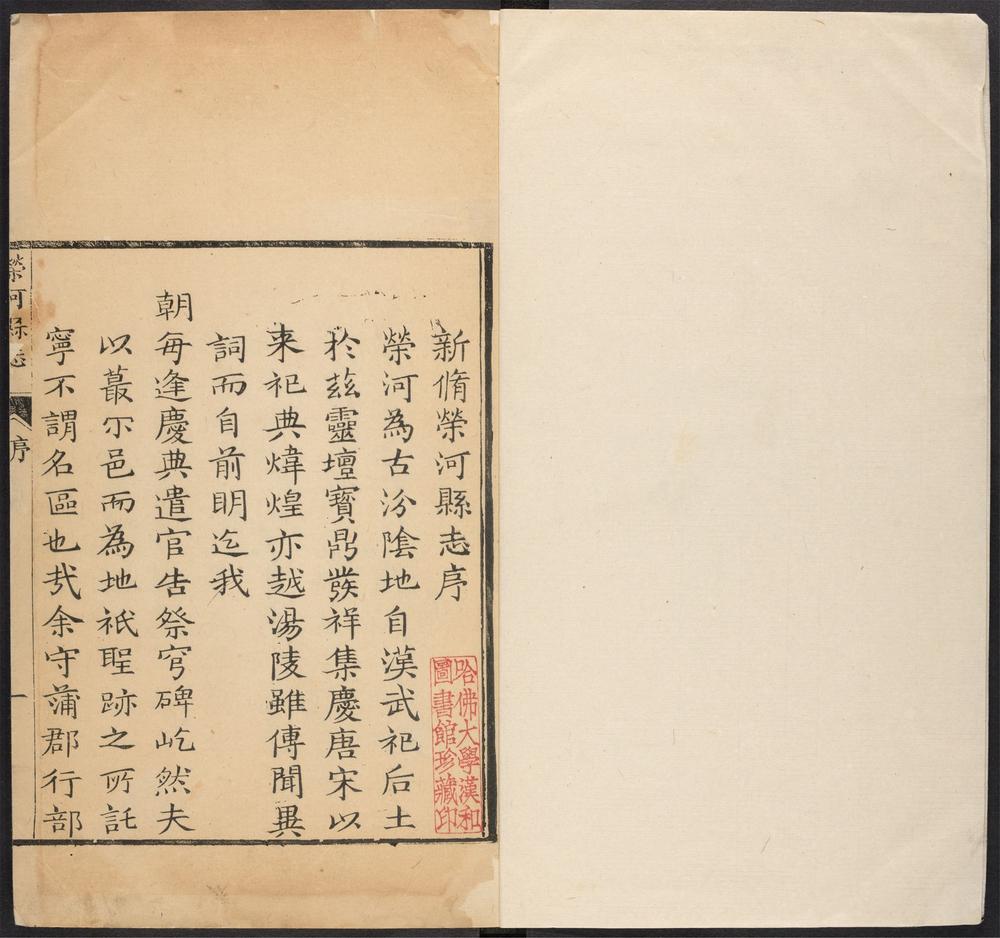 新脩榮河縣志序
榮河為古汾陰地自漢武祀后土
扵兹靈壇寳鼎發祥集慶唐宋以
来祀典煒煌亦越湯陵雖傳聞異
詞而自前明迄我
朝每逢慶典遣官告祭穹碑屹然夫
以蕞尒邑而為地祇聖跡之所託
寧不謂名區也㢤余守蒲郡行部
哈佛大學漢和
圖書館珍藏印
榮河縣志
序
一